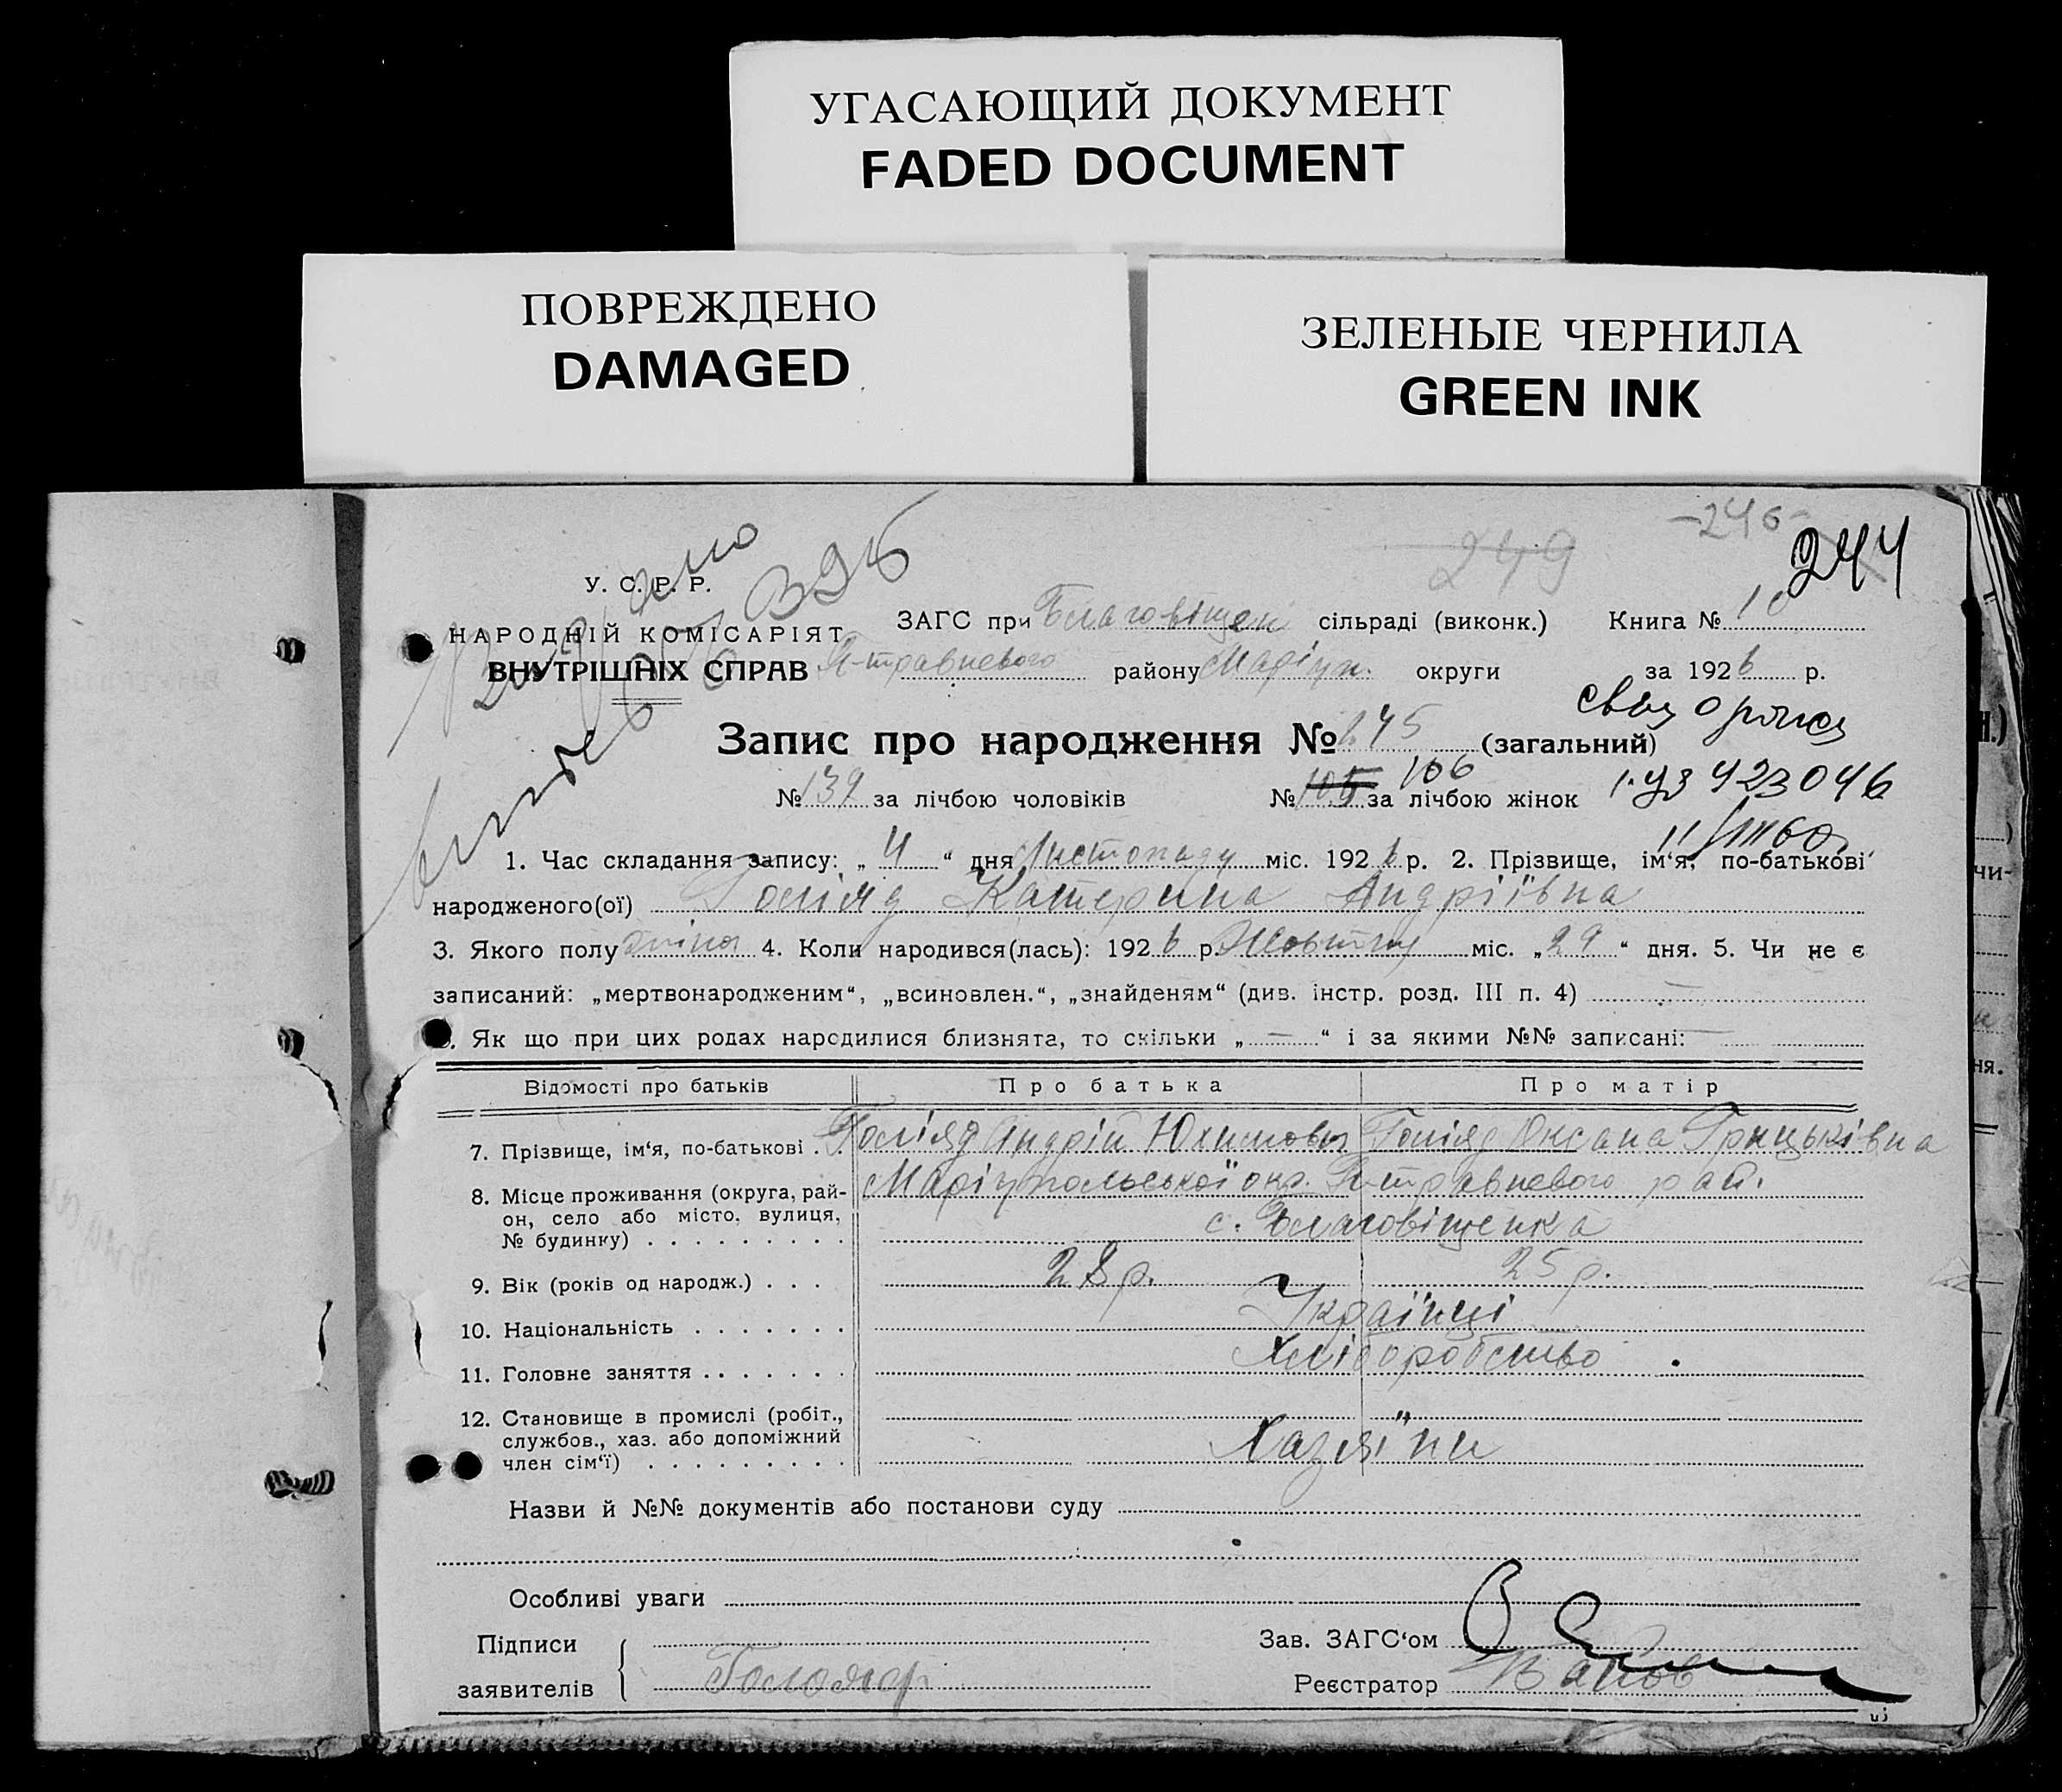 УГАСАЮЩИЙ ДОКУМЕНТ
FADED DOCUMENT
ПОВРЕЖДЕНО
DAMAGED
ЗЕЛЕНЫЕ ЧЕРНИЛА
GREEN INK
-246-
249
244
У. С. Р. Р.
НАРОДНІЙ КОМІСАРІЯТ
ВНУТРІШНІХ СПРАВ
ЗАГС при Благовіщен сільраді (виконк.) Книга № 10
1-травневого району Маріуп. округи за 1926 р.
Запис про народження № 245 (загальний)
№ 139 за лічбою чоловіків № 106 за лічбою жінок
1. Час складання запису: „ 4 “ дня Листопаду міс. 1926 р. 2. Прізвище, ім‘я, по-батькові
народженого(ої) Голіяд Катерина Андріївна
3. Якого полу жіноч 4. Коли народився(лась): 1926 р. Жовтня міс. „ 29 “ дня. 5. Чи не є
записаний: „мертвонародженим“, „всиновлен.“, „знайденям“ (див. інстр. розд. III п. 4) —
. Як що при цих родах народилися близнята, то скільки „ — “ і за якими №№ записані: —
Відомості про батьків Про батька Про матір
7. Прізвище, ім‘я, по-батькові . . Голіяд Андрій Юхимович Голіяд Оксана Грицьківна
8. Місце проживання (округа, рай- Маріупольської окр. 1-травневого рай.
он, село або місто, вулиця, с. Благовіщенка
№ будинку) . . . . . . . . .
9. Вік (років од народж.) . . . 28 р. 25 р.
10. Національність . . . . . . . Українці
11. Головне заняття . . . . . . . Хліборобство
12. Становище в промислі (робіт.,
службов., хаз. або допоміжний Хазяїни
член сім‘ї) . . . . . . . . .
Назви й №№ документів або постанови суду
Особливі уваги
Підписи Зав. ЗАГС‘ом
заявителів Реєстратор